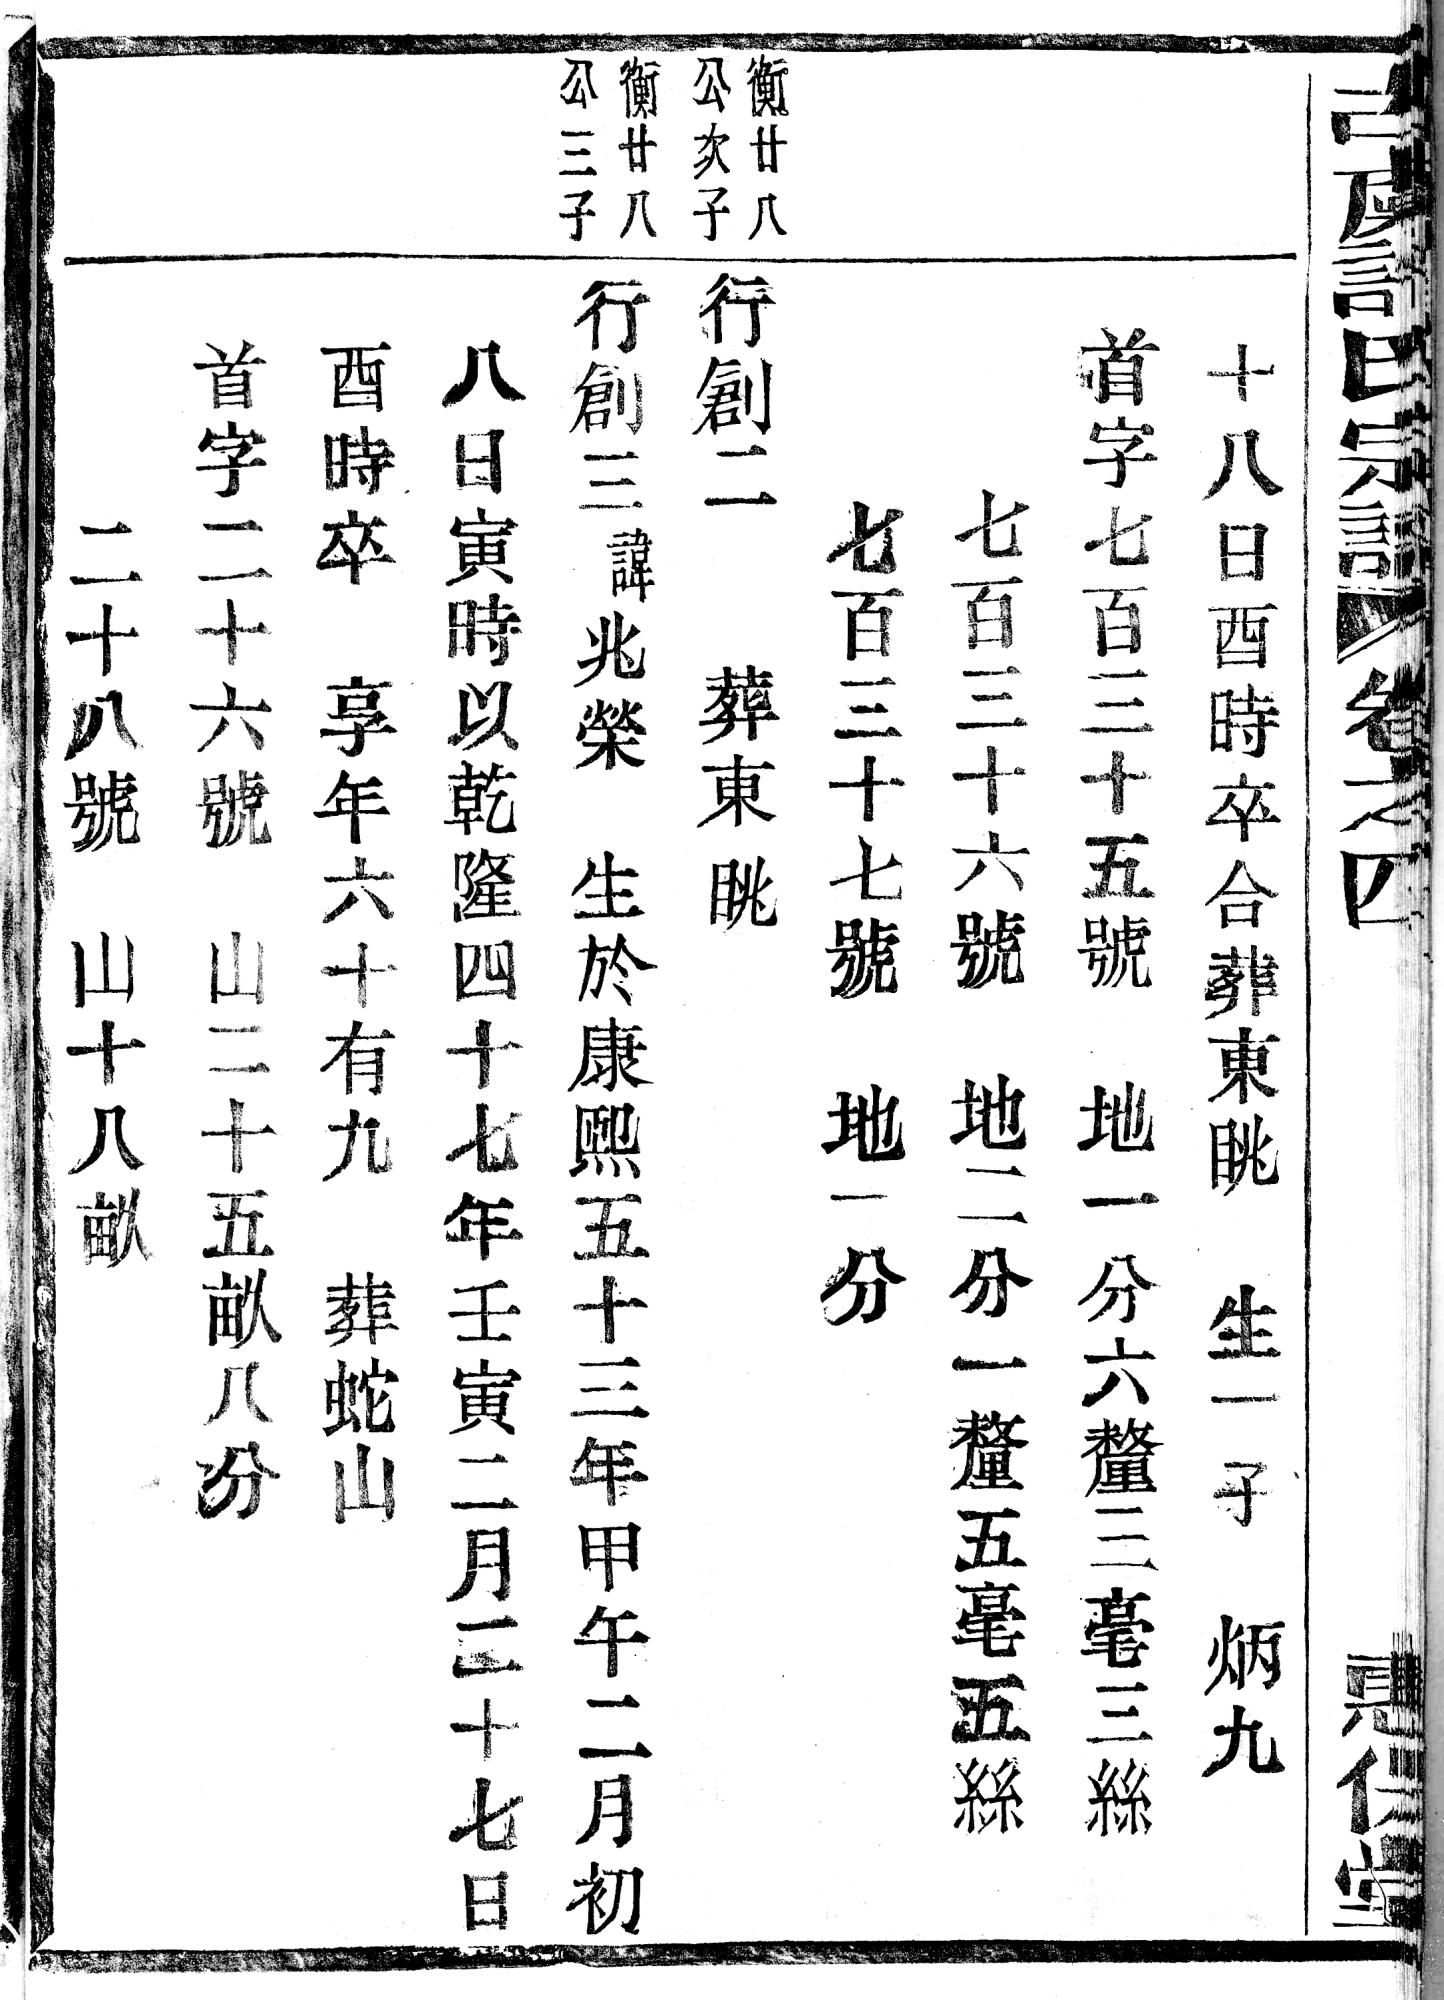 宗譜
卷之四
十八日酉時卒合葬東眺　生一子　炳九
首字七百三十五號　地一分六釐三毫三絲
七百三十六號　地二分一釐五毫五絲
七百三十七號　地一分
衡廿八
公次子
行創二　葬東眺
衡廿八
公三子
行創三諱兆榮　生於康熙五十三年甲午二月初
八日寅時以乾隆四十七年壬寅二月二十七日
酉時卒　享年六十有九　葬蛇山
首字二十六號　山二十五畝八分
二十八號　山十八畝